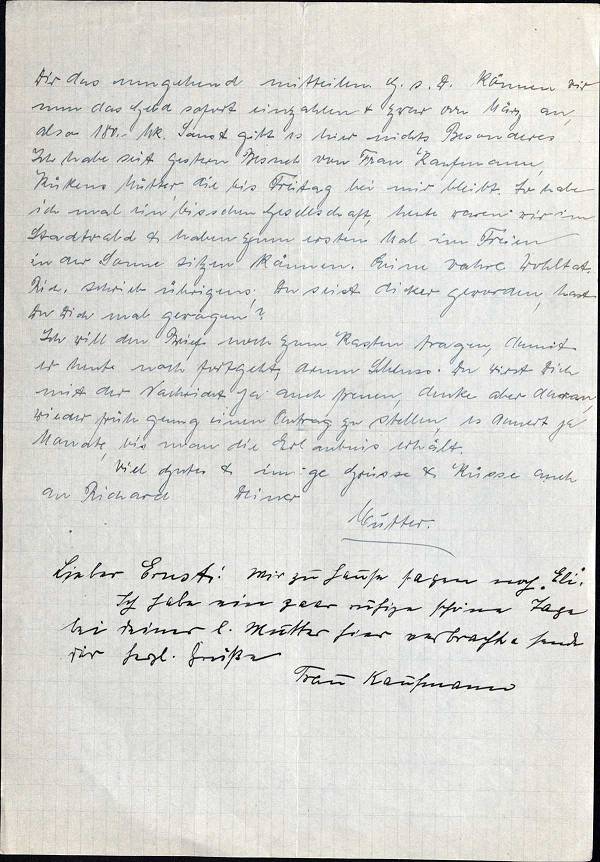 Dir das umgehend mitteilen. G. s. D. können wir
nun das Geld sofort einzahlen & zwar von März an,
also 180.- Mk. Sonst gibt es hier nichts Besonderes
Ich habe seit gestern Besuch von Frau Kaufmann,
Mutter, die bis Freitag bei mir bleibt. So habe
ich mal ein bisschen Gesellschaft, heute waren wir im
Stadtwald & haben zum ersten Mal im Freien
in der Sonne sitzen können. Eine wahre Wohltat.
Rich. schrieb übrigens, Du seist dicker geworden, hast
Du Dich mal gewogen?
Ich will den Brief noch zum Kasten tragen, damit
er heute noch fortgeht, drum Schluss. Du wirst Dich
mit der Nachricht ja auch freuen, denke aber daran,
wieder früh genug einen Antrag zu stellen, es dauert ja
Monate, bis man die Erlaubnis erhält.
Viel Gutes & innige Grüsse & Küsse auch
an Richard Deiner
Mutter.
Lieber Ernst! Wir zu Hause sagen noch
Ich habe ein paar ruhige schöne Tage
bei Deiner l. Mutter hier verbracht & sende
Dir herzl. Grüße
Frau Kaufmann